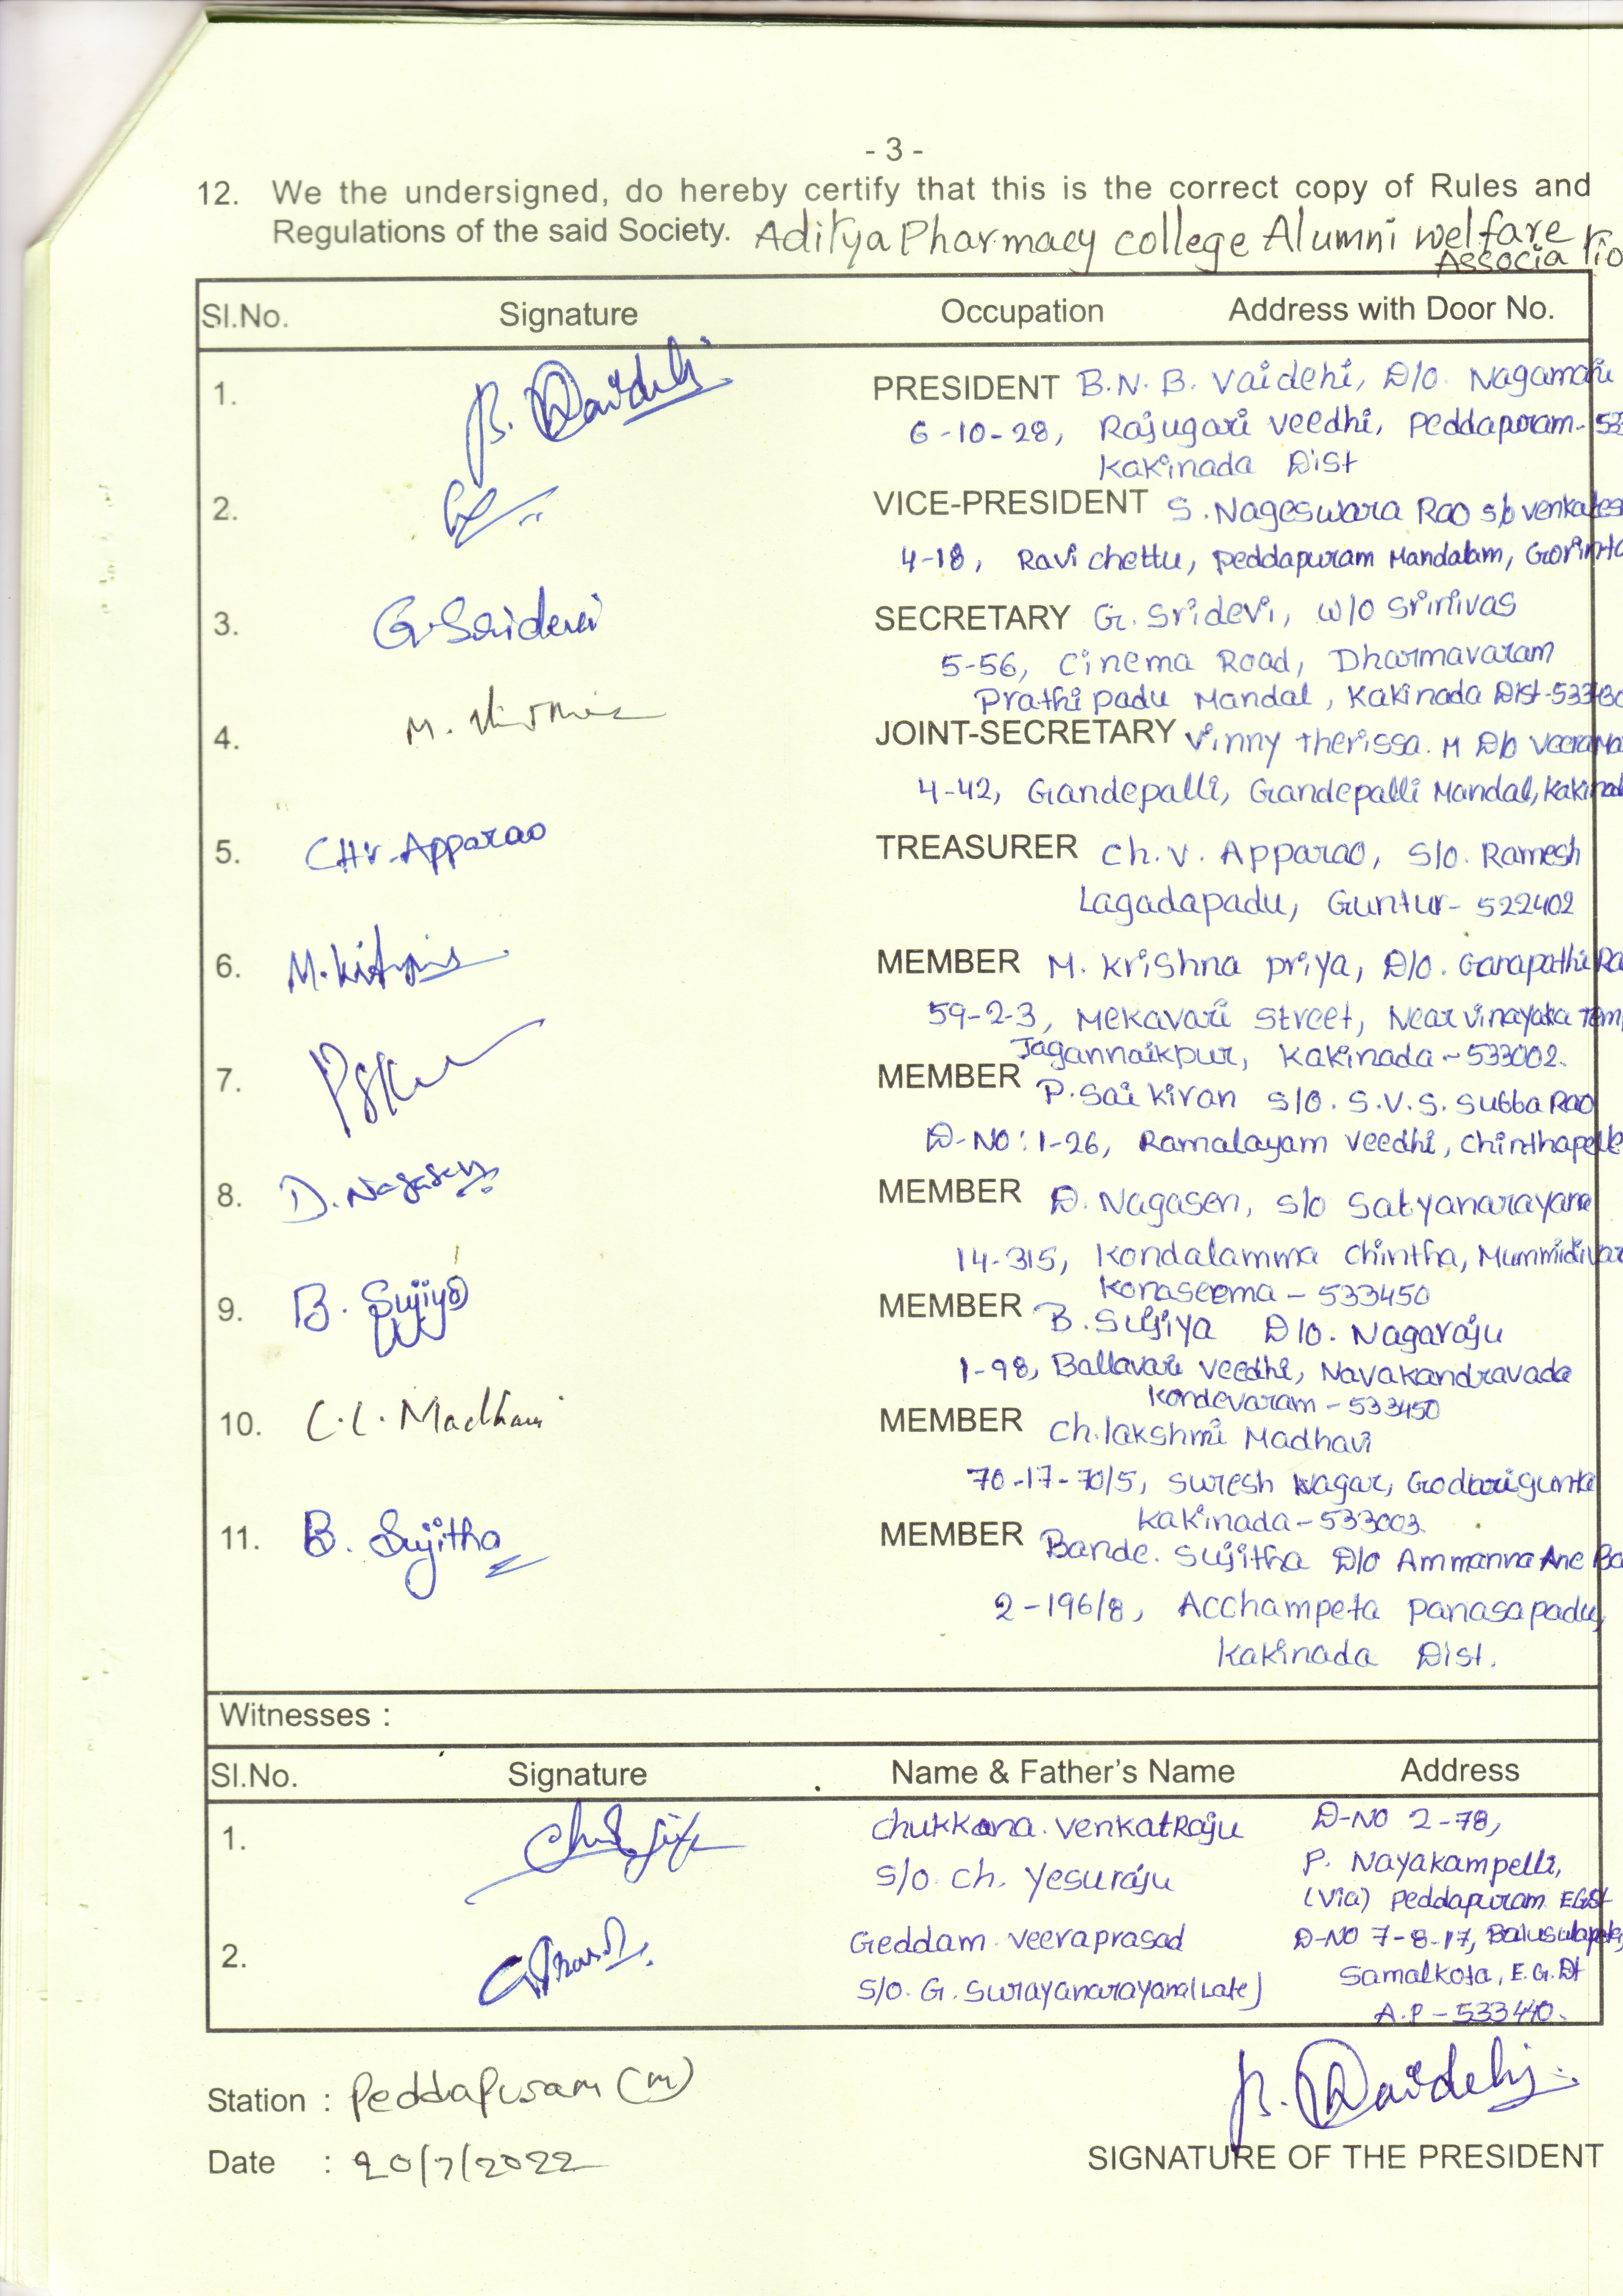 - 3 -
12. We the undersigned, do hereby certify that this is the correct copy of Rules and
Regulations of the said Society. Aditya Pharmacy college Alumni welfare
Associatio
Sl.No. Signature Occupation Address with Door No.
1. B. Vaidehi PRESIDENT B.N.B. Vaidehi, D/o. Nagamani
6-10-28, Rajugari veedhi, Peddapuram- 53
Kakinada Dist
2. VICE-PRESIDENT S. Nageswara Rao s/o venkates
4-18, Ravi chettu, Peddapuram Mandalam, Gorinta
3. G. Sridevi SECRETARY G. Sridevi, w/o Srinivas
5-56, Cinema Road, Dharmavaram
Prathipadu Mandal, Kakinada Dist-53343
4. JOINT-SECRETARY Vinny therissa. M D/o Veera
4-42, Gandepalli, Gandepalli Mandal, Kakinad
5. CH.V. Apparao TREASURER Ch. V. Apparao, S/o. Ramesh
Lagadapadu, Guntur- 522402
6. MEMBER M. Krishna priya, D/o. Ganapathi Ra
59-2-3, Mekavari Street, Near vinayaka Tem
Jagannaikpur, Kakinada - 533002.
7. MEMBER P. Sai Kiran S/o. S.V.S. Subba Rao
D-NO: 1-26, Ramalayam veedhi, Chinthapelle
8. D. Nagasen MEMBER D. Nagasen, S/o Satyanarayana
14-315, Kondalamma Chintha, Mummidivar
Konaseema - 533450
9. B. Sujiya MEMBER B. Sujiya D/o. Nagaraju
1-98, Ballavari veedhi, Navakandravada
Kondevaram - 533450
10. C.L. Madhavi MEMBER Ch. lakshmi Madhavi
70-17-70/5, Suresh Nagar, Godarigunta
Kakinada - 533003.
11. B. Sujitha MEMBER Bande. Sujitha D/o Ammanna Ane Ba
2-196/8, Acchampeta Panasapadu,
Kakinada Dist.
Witnesses :
Sl.No. Signature Name & Father's Name Address
1. Chukkana. VenkatRaju D-NO 2-78,
S/o. Ch. Yesuraju P. Nayakampelli,
(Via) Peddapuram EGst
2. Geddam. Veeraprasad D-NO 7-8-17, Balusulapeta,
S/o. G. Surayanarayana (Late) Samalkota, E.G.Dt
A.P - 533440.
Station : Peddapuram (m)
B. Vaidehi
Date : 20/7/2022 SIGNATURE OF THE PRESIDENT